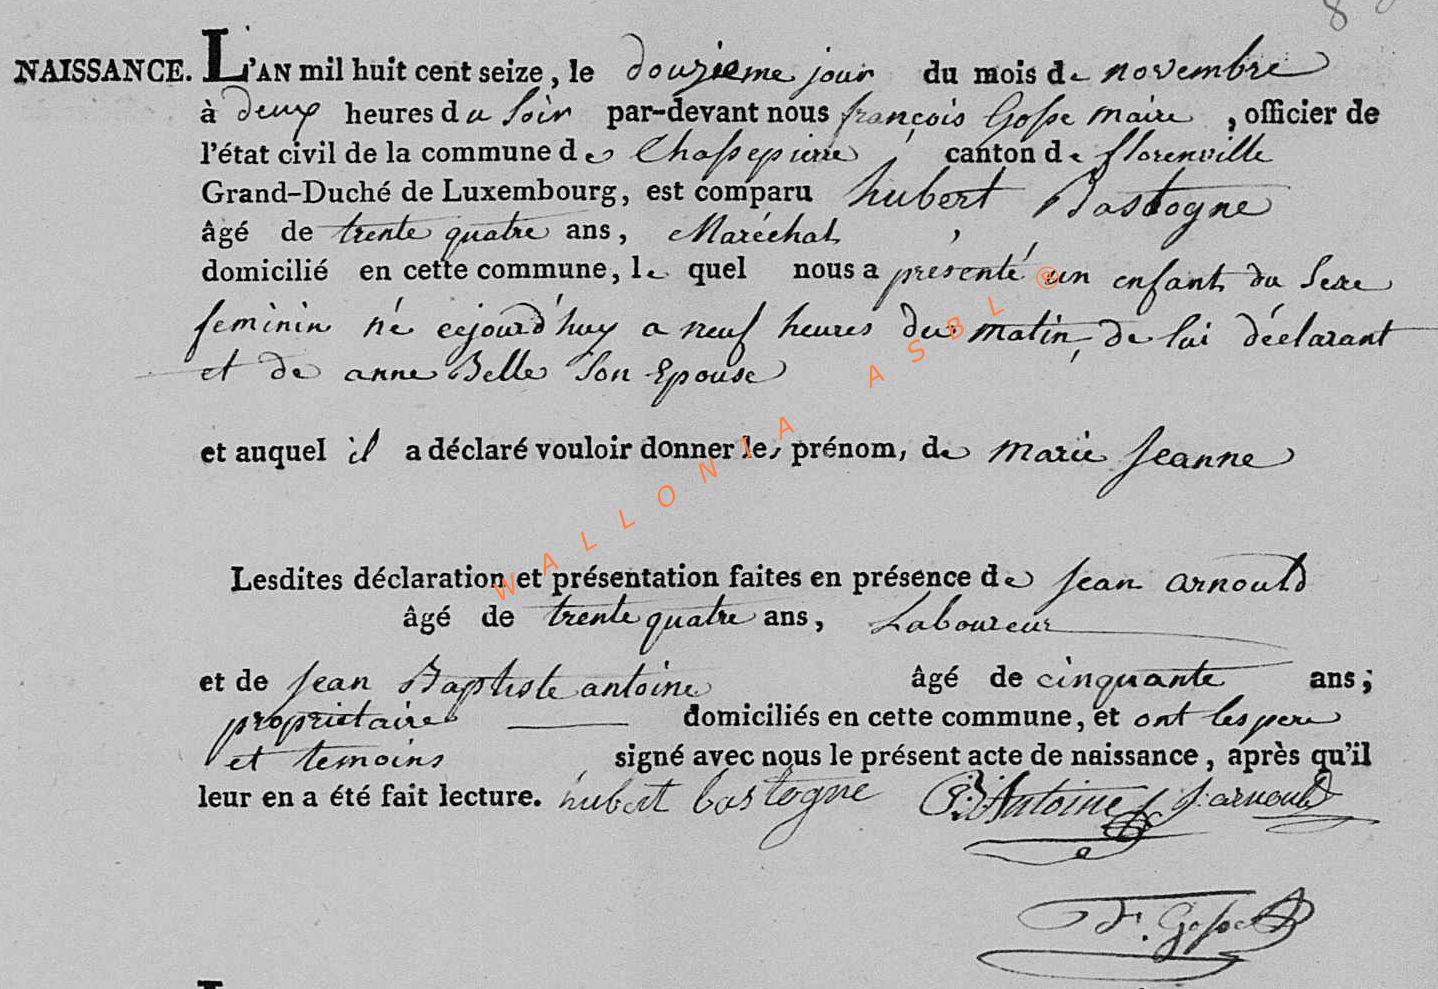 NAISSANCE. L'AN mil huit cent seize, le douzieme jour du mois de novembre
à deux heures du soir par-devant nous françois Gosse maire, officier de
l'état civil de la commune de Chassepierre canton de florenville
Grand-Duché de Luxembourg, est comparu hubert Bastogne
âgé de trente quatre ans, Maréchal,
domicilié en cette commune, le quel nous a presenté un enfant du Sexe
feminin né cejourd'huy a neuf heures du matin, de lui déclarant
et de anne Belle Son Epouse
et auquel il a déclaré vouloir donner les prénom, de marie jeanne
Lesdites déclaration et présentation faites en présence de jean arnould
âgé de trente quatre ans, Laboureur
et de jean Baptiste antoine âgé de cinquante ans;
proprietaire domiciliés en cette commune, et ont les pere
et temoins signé avec nous le présent acte de naissance, après qu'il
leur en a été fait lecture. hubert bastogne Antoine J. arnould
F. Gosse
WALLONIA ASBL ®